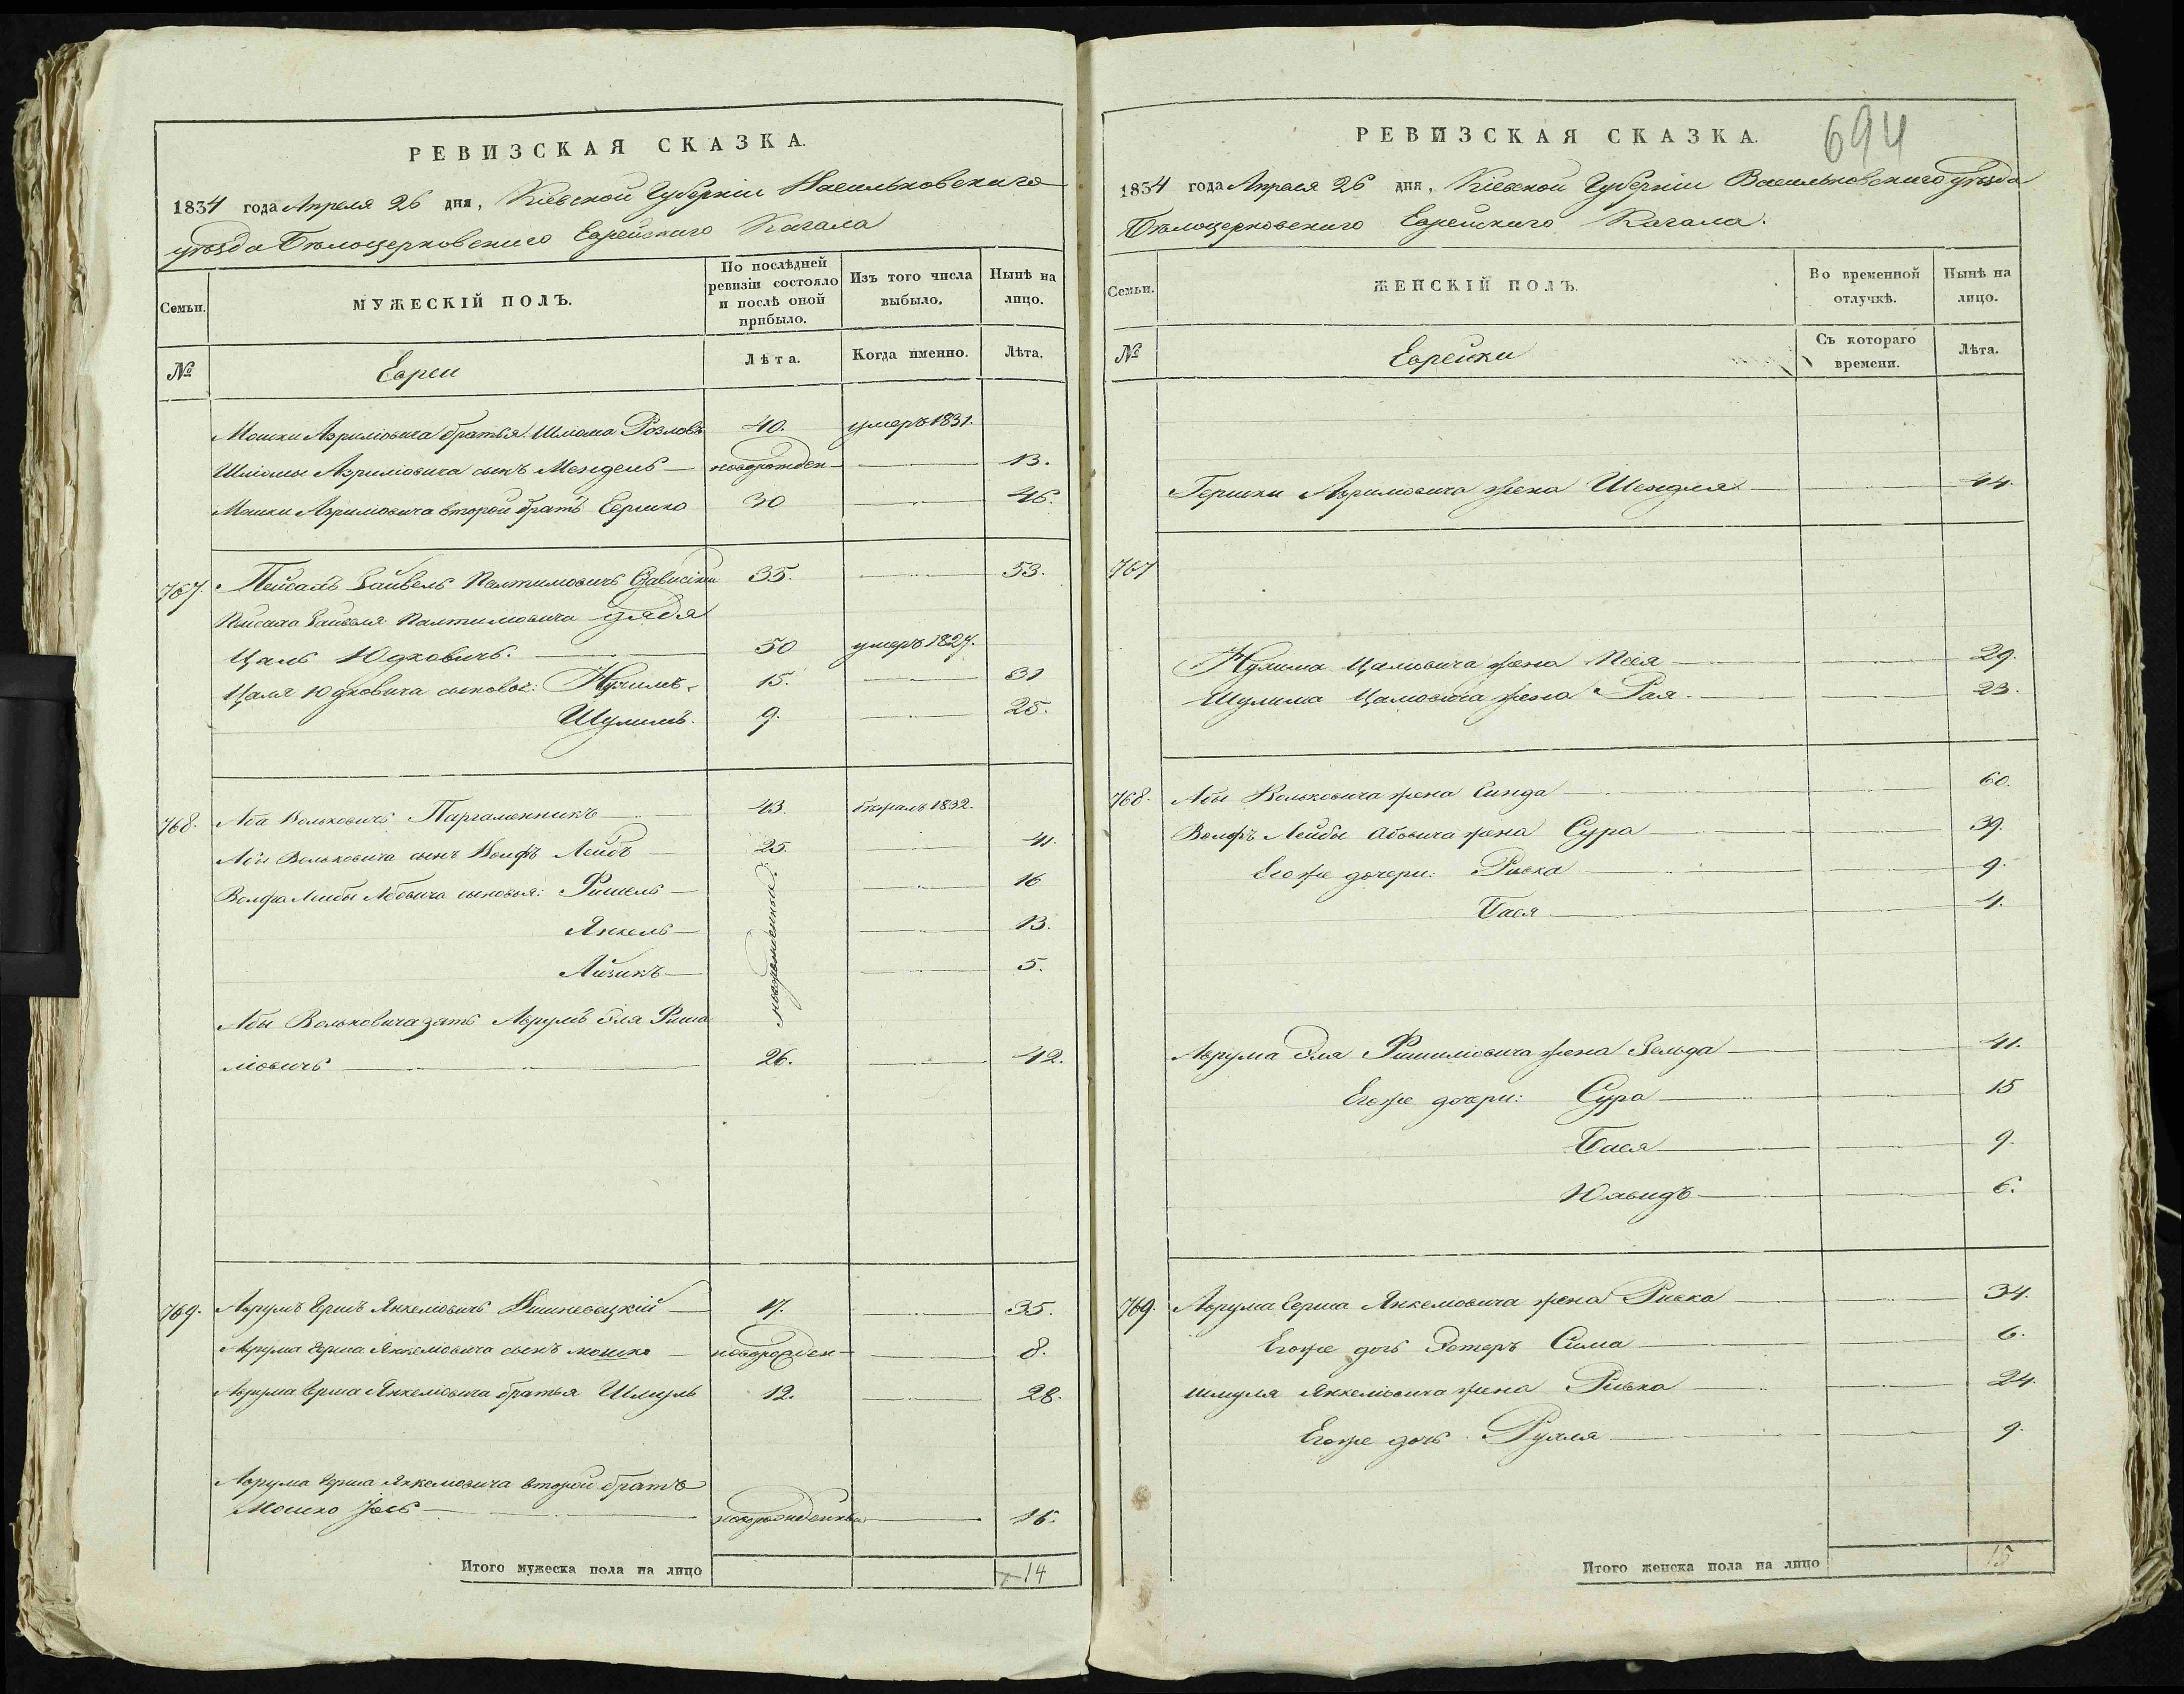 РЕВИЗСКАЯ СКАЗКА.
1834 года Апреля 26 дня, Кіевской Губерніи Васильковскаго
уѣзда Бѣлоцерковскаго Еврейскаго Кагала
Семьи.
МУЖЕСКІЙ ПОЛЪ.
По послѣдней ревизіи состояло и послѣ оной прибыло.
Изъ того числа выбыло.
Нынѣ на лицо.
№
Евреи
Лѣта.
Когда именно.
Лѣта.
Мошки Азриліовича братья Шлиома 40. умеръ 1831.
Шліомы Азриліовича сынъ Мендель новорожден 13.
Мошки Азриліовича второй братъ Гершко 30 46.
767. Пейсахъ Зайвель 35. 53.
Пейсаха Зайвеля дядя
Цаль Юдковичъ. 50 умеръ 1827.
Цаля Юдковича сыновья: 15. 31
Шулимъ. 9. 25.
768. Аба Вольковичъ Паргаменникъ 43. бѣжалъ 1832.
Абы Вольковича сынъ Волфъ Лейбъ 25. 41.
Волфа Лейбы Абовича сыновья: Фишель 16
новорожденные
Янкель 13.
Айзикъ 5.
Абы Вольковича зять Аврумъ Эля Фише
ліовичъ 26. 42.
769. Аврумъ Гершъ Янкеліовичъ Вишневецкій 17. 35.
Аврума Герша Янкеліовича сынъ мошко новорожден 8.
Аврума Герша Янкеліовича братья Шмуль 12. 28.
Аврума Герша Янкеліовича второй братъ
Мошко Іось новорожденный 16.
Итого мужеска пола на лицо 14
694
РЕВИЗСКАЯ СКАЗКА.
1834 года Апреля 26 дня, Кіевской Губерніи Васильковскаго уѣзда
Бѣлоцерковскаго Еврейскаго Кагала.
Семьи.
ЖЕНСКІЙ ПОЛЪ.
Во временной отлучкѣ.
Нынѣ на лицо.
№
Еврейки
Съ котораго времени.
Лѣта.
Гершки Азриліовича жена Шендля 44.
767
Цаліовича жена 29.
Шулима Цаліовича жена Рая 23.
768. Абы Вольковича жена Синда 60.
Волфъ Лейбы Абовича жена Сура 39.
Егоже дочери: Ривка 9.
Бася 4.
Аврума Эля Фишиліовича жена Зельда 41.
Егоже дочери: Сура 15
Бася 9.
6.
769. Аврума Герша Янкеліовича жена Ривка 34.
Егоже дочь Эстеръ Сима 6.
Шмуля Янкеліовича жена Ривка 24.
Егоже дочь 9.
Итого женска пола на лицо 15